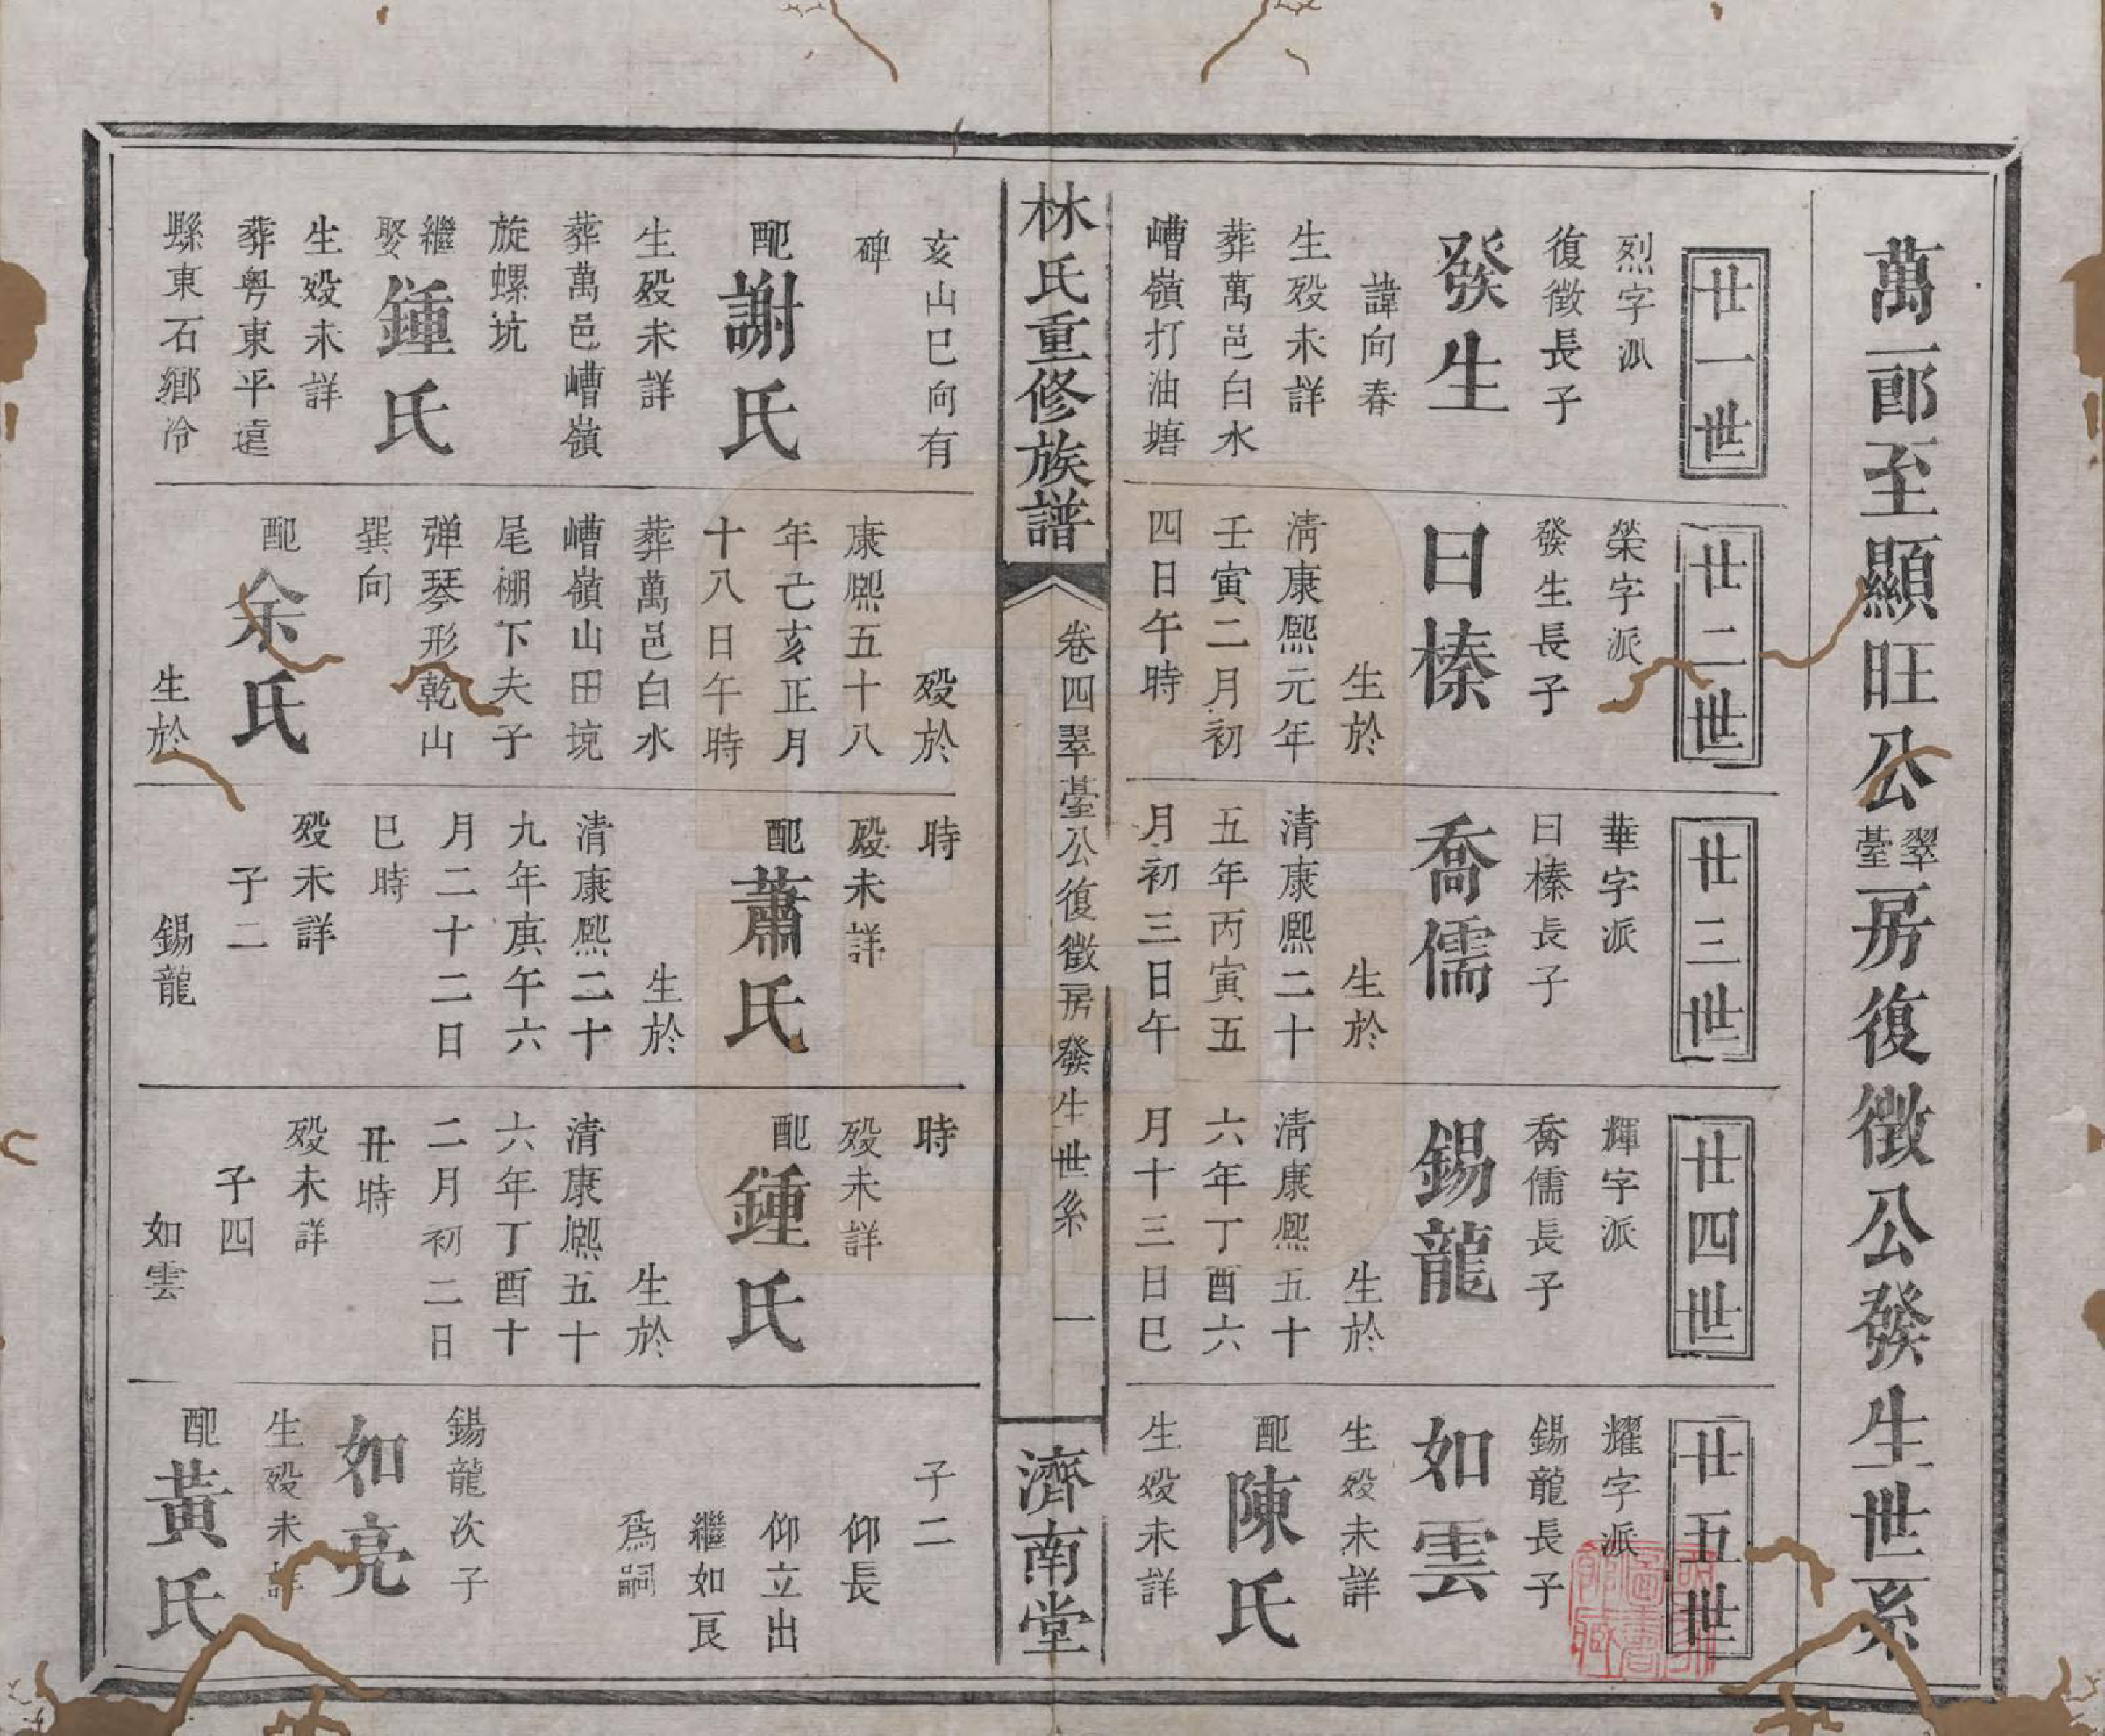 萬一郎至顯旺公翠臺房復徵公發生世系
廿一世
烈字派
復徵長子
發生
諱向春
生歿未詳
葬萬邑白水
嶆嶺打油塘
廿二世
榮字派
發生長子
曰榛
生於
清康熙元年
壬寅二月初
四日午時
廿三世
華字派
曰榛長子
喬儒
生於
清康熙二十
五年丙寅五
月初三日午
廿四世
輝字派
喬儒長子
錫龍
生於
清康熙五十
六年丁酉六
月十三日巳
廿五世
耀字派
錫龍長子
如雲
生歿未詳
配陳氏
生歿未詳
林氏重修族譜
卷四翠臺公復徵房發生世系 一
濟南堂
亥山巳向有
碑
配謝氏
生歿未詳
葬萬邑嶆嶺
旋螺坑
繼娶鍾氏
生歿未詳
葬粤東平遠
縣東石鄉冷
歿於
康熙五十八
年己亥正月
十八日午時
葬萬邑白水
嶆嶺山田境
尾棚下夫子
弹琴形乾山
巽向
配余氏
生於
時
歿未詳
配蕭氏
生於
清康熙二十
九年庚午六
月二十二日
巳時
歿未詳
子二
錫龍
時
歿未詳
配鍾氏
生於
清康熙五十
六年丁酉十
二月初二日
丑時
歿未詳
子四
如雲
子二
仰長
仰立出
繼如艮
為嗣
錫龍次子
如亮
生歿未詳
配黃氏